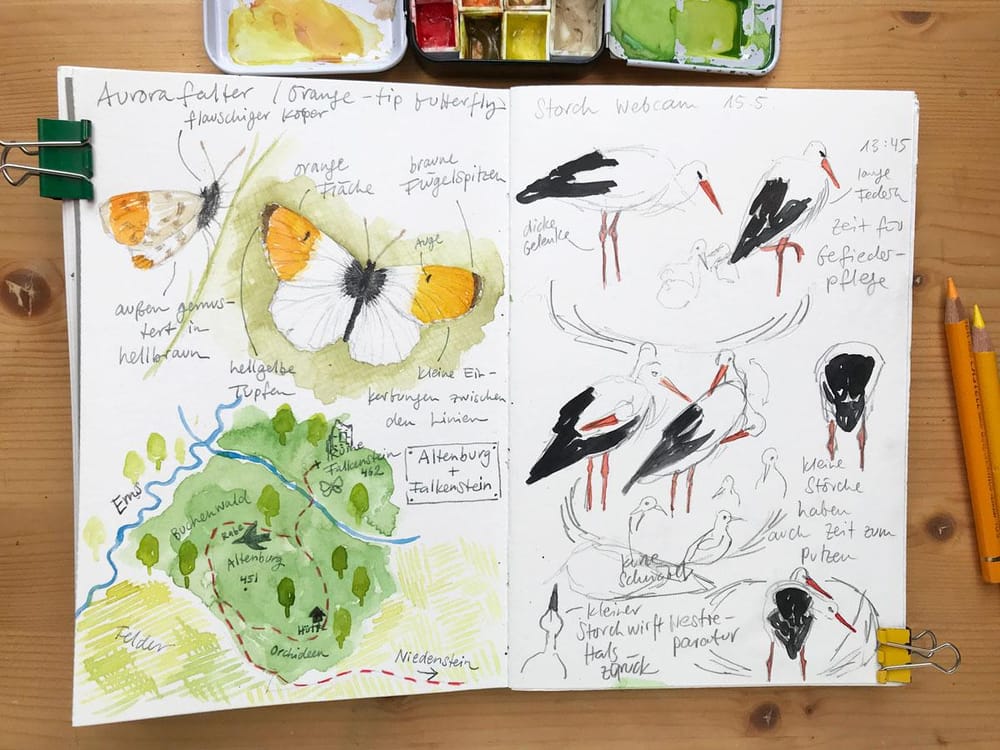 Aurorafalter / orange-tip butterfly
flauschiger Köper
orange
Fläche
braune
Flügelspitzen
Auge
außen gemus-
tert in
hellbraun
hellgelbe
Tupfen
kleine Ein-
kerbungen zwischen
den Linien
Altenburg
+
Falkenstein
Ruine
Falkenstein
462
Ems
Buchenwald
Rabe
Altenburg
451
Hütte
Orchideen
Felder
Niedenstein
Storch Webcam 15.5.
13:45
lange
Federn
dicke
Gelenke
Zeit für
Gefieder-
pflege
kleine
Störche
haben
auch Zeit zum
putzen
kleiner
Storch wirft
Hals
zurück
Nestre-
paratur